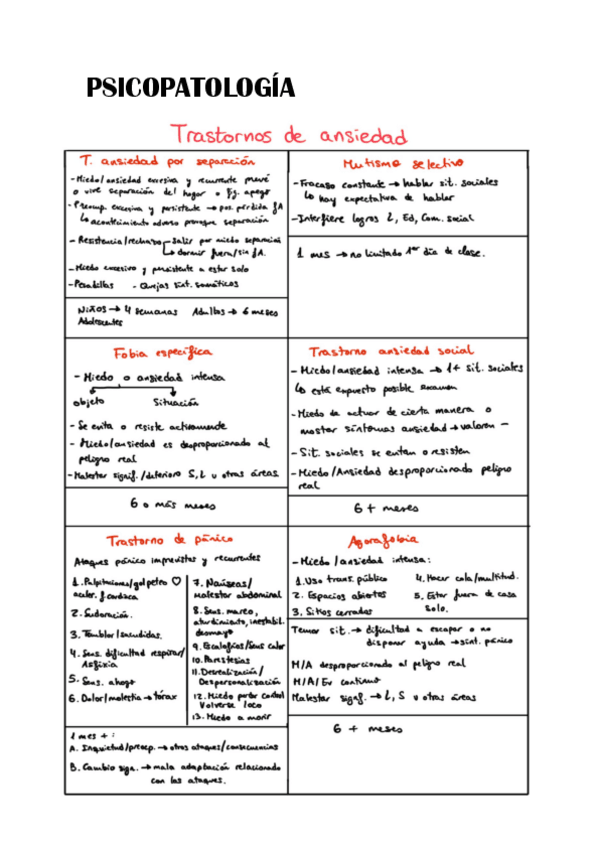 PSICOPATOLOGÍA
Trastornos de ansiedad
T. ansiedad por separación
-Miedo/ansiedad excesiva y recurrente prevé
o vive separación del hogar o Fg. apego
-Preocup. excesiva y persistente → pos. pérdida fA
↳ acontecimiento adverso provoque separación
- Resistencia/rechazo → salir por miedo separación
↳ dormir fuera/sin fA.
-Miedo excesivo y persistente a estar solo
-Pesadillas - Quejas sínt. somáticos
Niños → 4 semanas Adultos → 6 meses
Adolescentes
Mutismo selectivo
-Fracaso constante → hablar sit. sociales
↳ hay expectativa de hablar
-Interfiere logros L, Ed, Com. social
1 mes → no limitado 1er día de clase.
Fobia específica
- Miedo o ansiedad intensa
objeto Situación
- Se evita o resiste activamente
- Miedo/ansiedad es desproporcionado al
peligro real
-Malestar signif./deterioro S, L u otras áreas.
6 o más meses
Trastorno ansiedad social
- Miedo/ansiedad intensa → 1+ sit. sociales
↳ está expuesto posible examen
-Miedo de actuar de cierta manera o
mostar síntomas ansiedad → valoren -
- Sit. sociales se evitan o resisten
-Miedo/Ansiedad desproporcionado peligro
real
6 + meses
Trastorno de pánico
Ataques pánico imprevistos y recurrentes
1. Palpitaciones/golpeteo ♡
aceler. f cardiaca
2. Sudoración.
3. Temblor/sacudidas.
4. Sens. dificultad respirar/
Asfixia
5. Sens. ahogo
6. Dolor/molestia → tórax
7. Naúseas/
Malestar abdominal
8. Sens. mareo,
aturdimiento, inestabil.
desmayo
9. Escalofríos/Sens calor
10. Parestesias
11. Desrealización/
Despersonalización
12. Miedo perder control
Volverse loco
13. Miedo a morir
1 mes + :
A. Inquietud/preocp. → otros ataques/consecuencias
B. Cambio sign. → mala adaptación relacionado
con los ataques.
Agorafobia
-Miedo/ansiedad intensa:
1. Uso trans. público
2. Espacios abiertos
3. Sitios cerrados
4. Hacer cola/multitud.
5. Estar fuera de casa
solo.
Temor sit. → dificultad a escapar o no
disponer ayuda → sínt. pánico
M/A desproporcionado al peligro real
M/A/Ev continuo
Malestar signif. → L, S u otras áreas
6 + meses